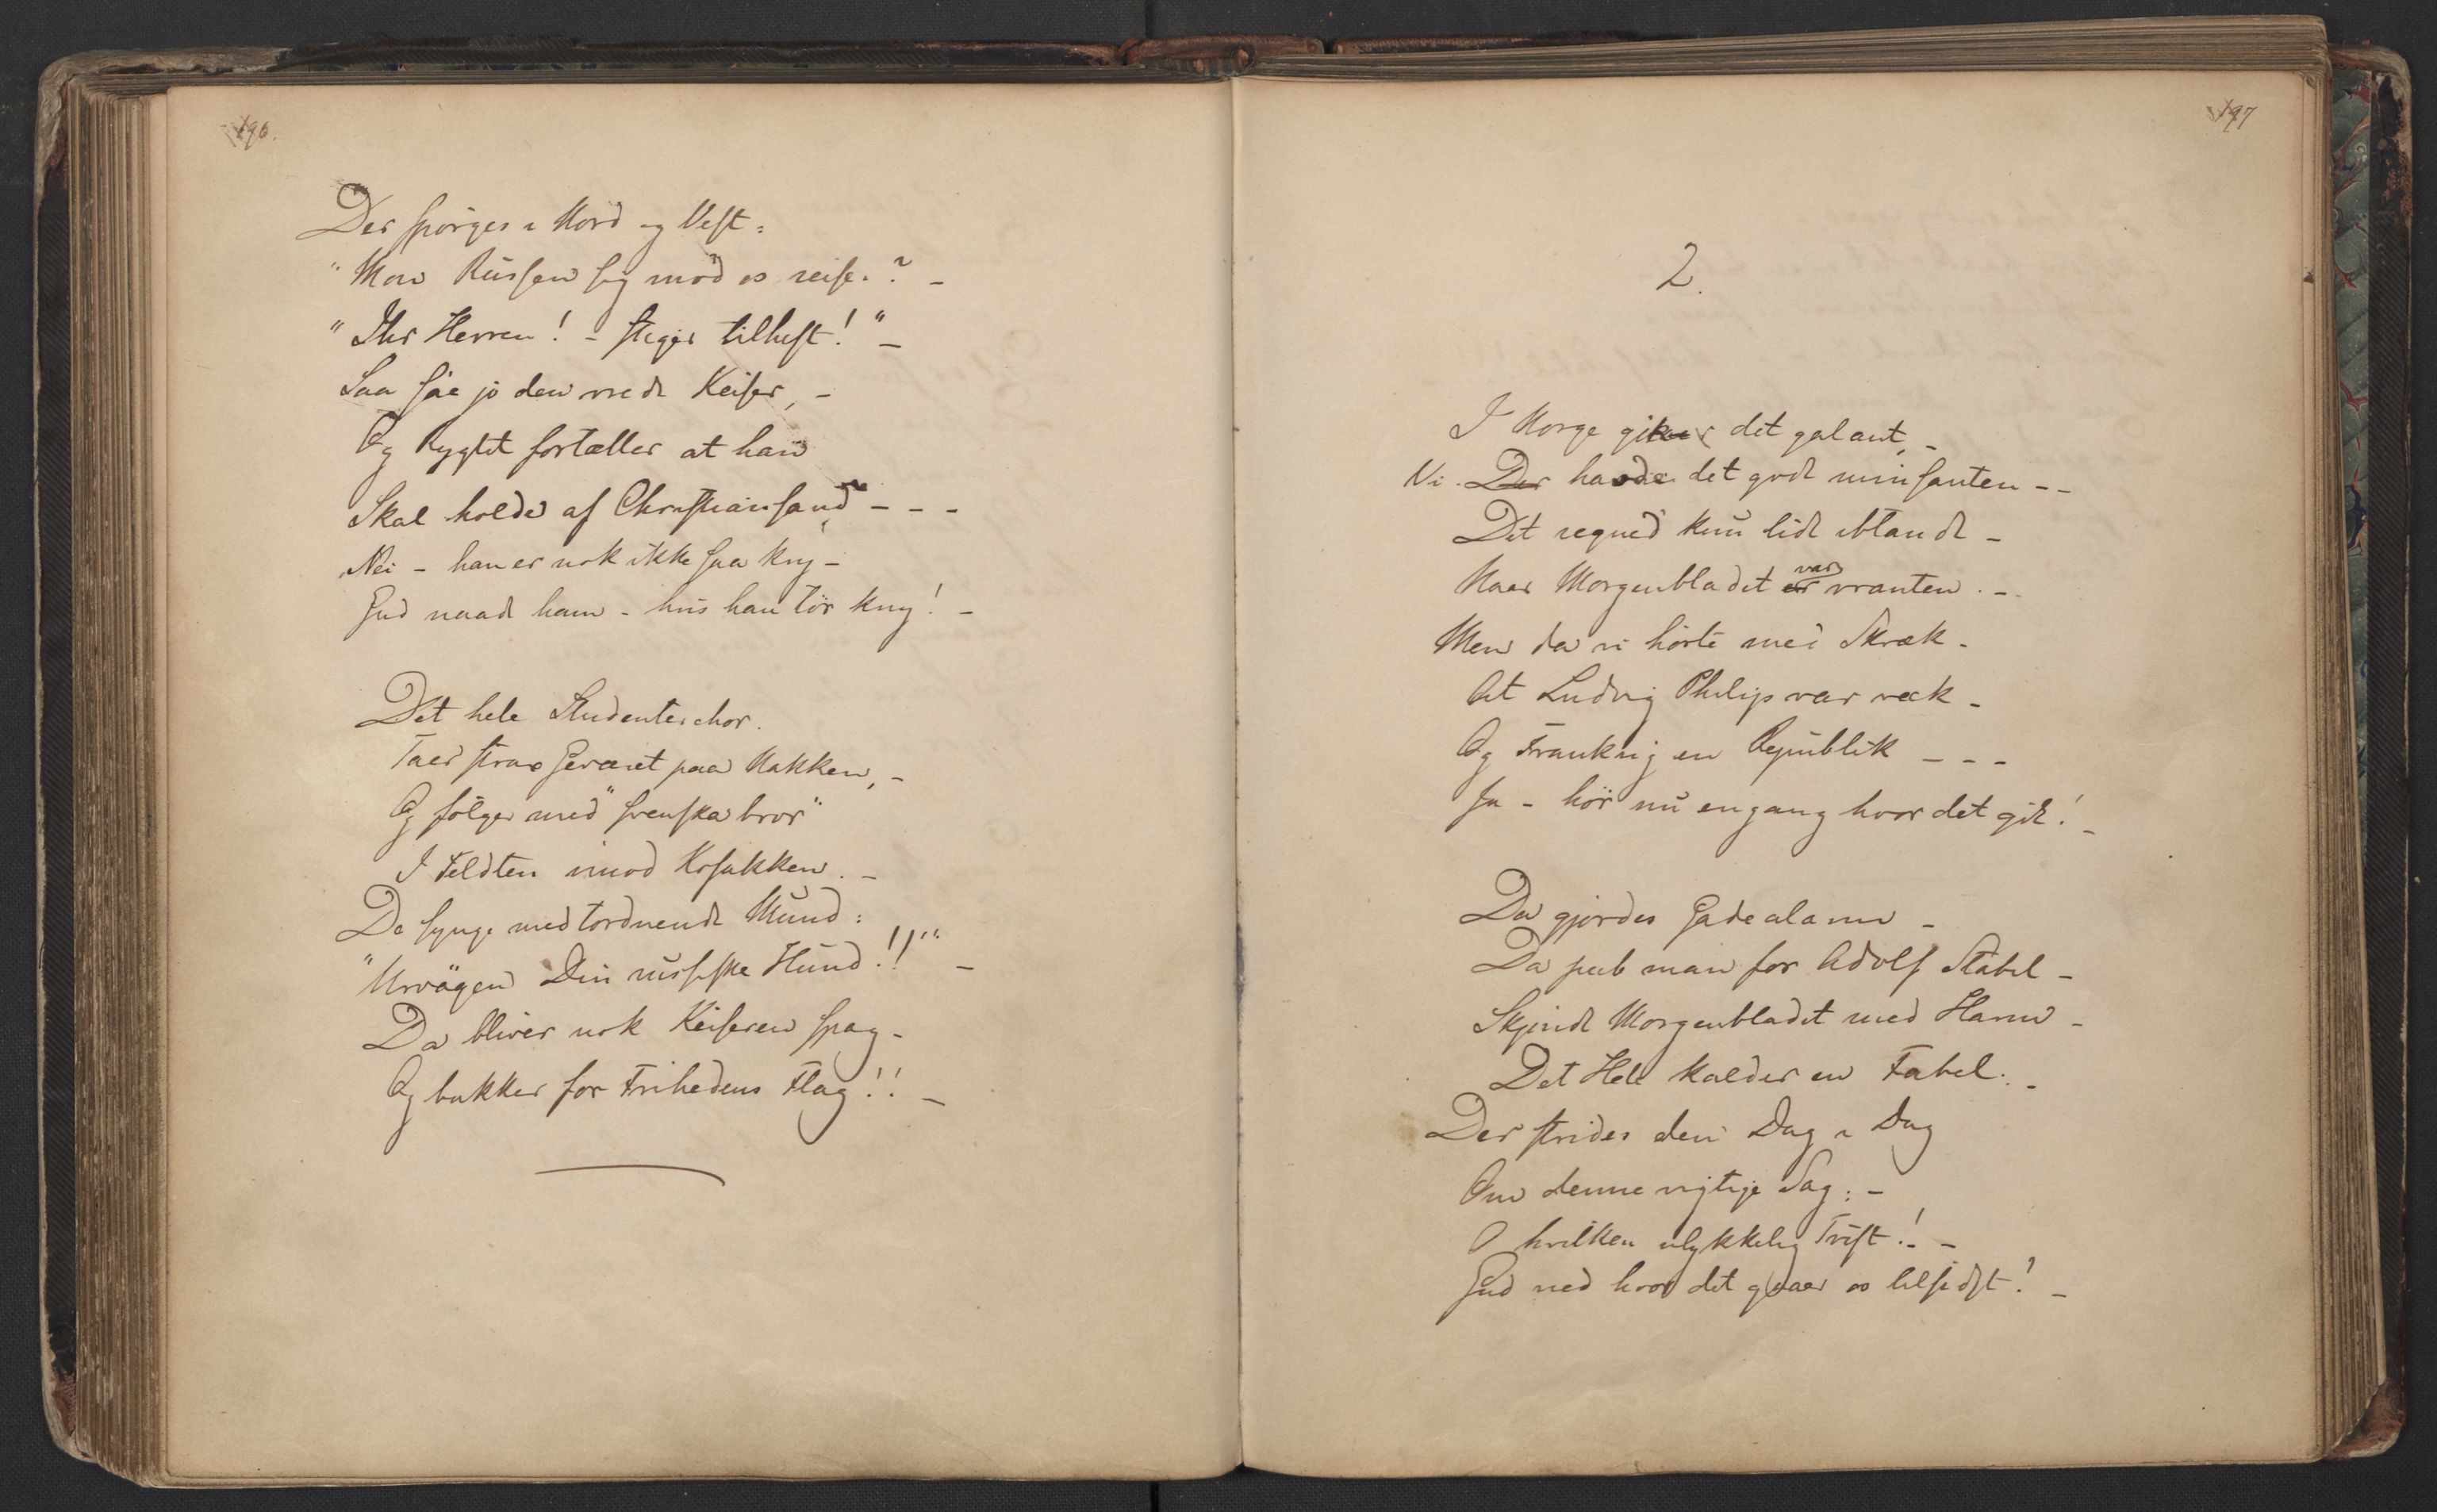 196.
Der spörges i Nord og Vest:
"Mon Russen sig mod os reise? –
"Ihr Herren! – stiger tilhest!" –
Saa sae jo den vrede Keiser, –
Og Rygtet fortæller at han
Skal holde af Christiansand – – –
Nei – han er nok ikke saa kry –
Gud naade ham – hvis han tör kny! –
Det hele Studenterchor.
Taer strax Geværet paa Nakken, –
Og fölger med "svenska bror"
I Feldten imod Kosakken. –
De synge med tordnende Mund:
"Urvägen Din russiske Hund!!" –
Da bliver nok Keiseren spag –
Og bukker for Frihedens Flag!! –
197
2.
I Norge gik det galant, –
Vi. Der havde det godt minsanten – –
Det regned kun lidt iblandt –
Naar Morgenbladet er var vranten. –
Men da vi hörte med Skræk –
At Ludvig Philip var væk –
Og Frankrig en Republik – – –
Ja – hör nu engang hvor det gik! –
Da gjordes Gadealarm –
Da peb man for Adolf Stabel –
Skjöndt Morgenbladet med Harm –
Det Hele kalder en Fabel. –
Der strides den Dag i Dag
Om denne vigtige Sag: –
O hvilken ulykkelig Tvist! –
Gud ved hvor det gaaer os tilsidst! –